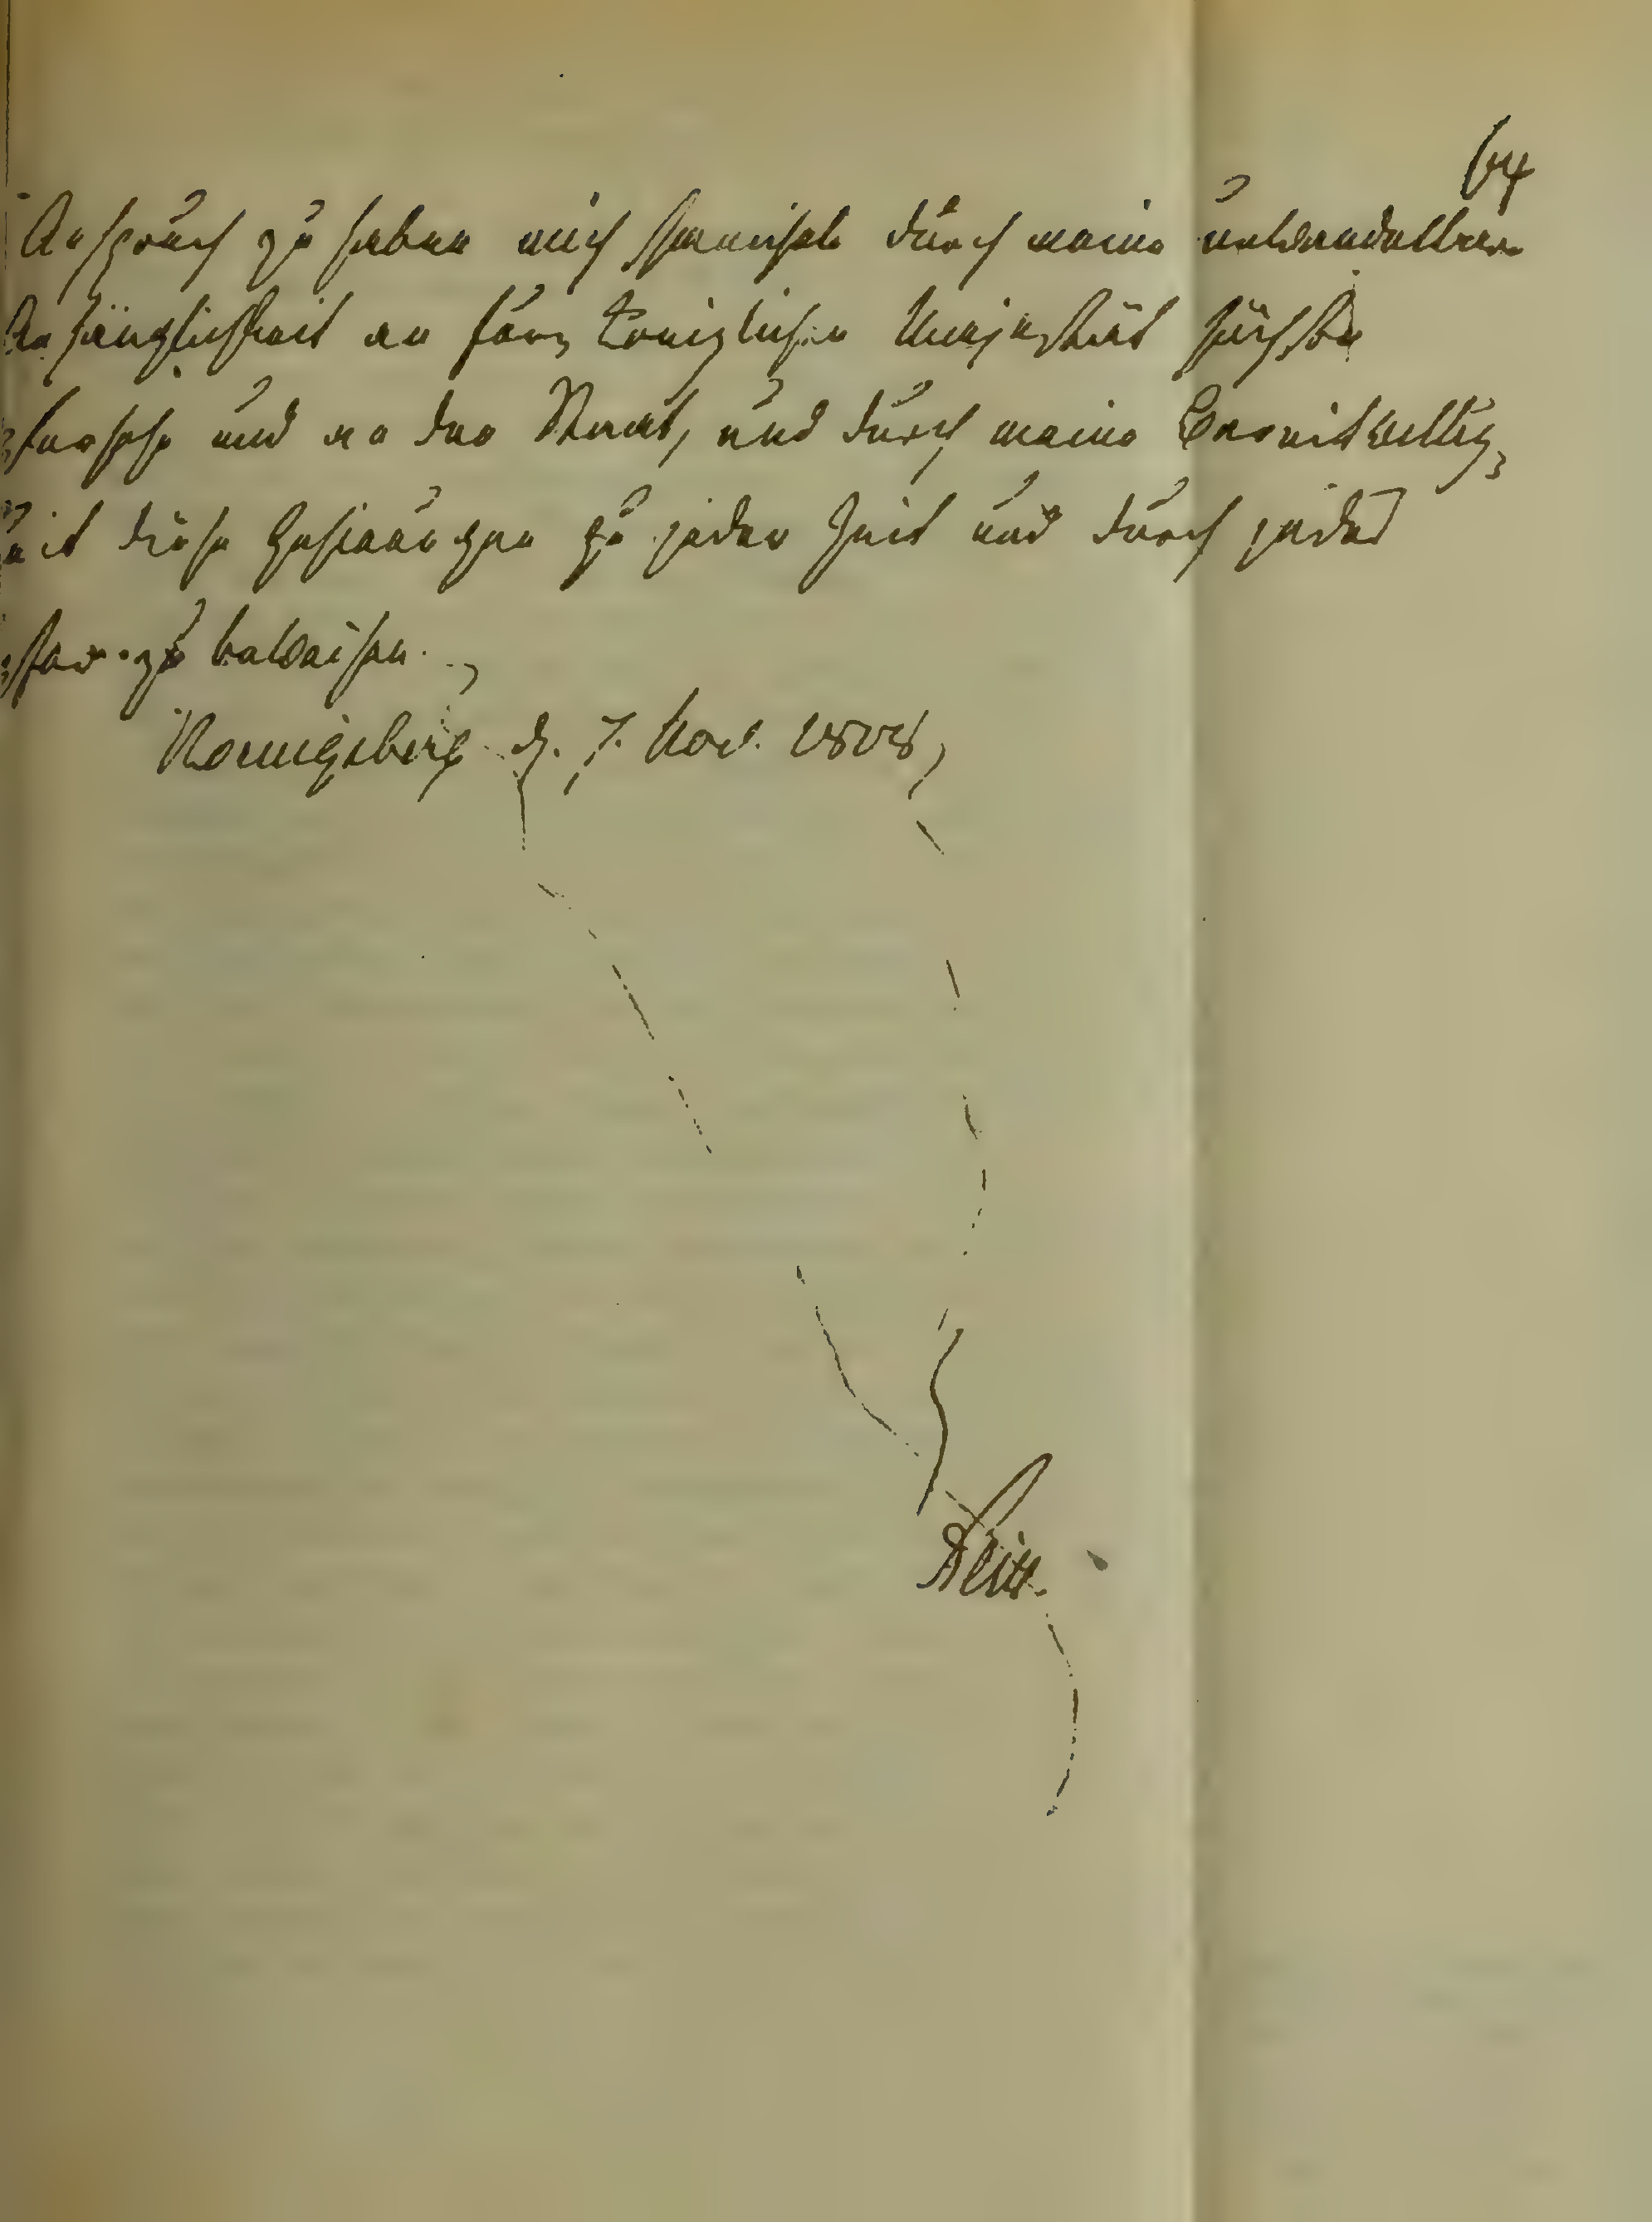 64
Anspruch zu haben mich schmeichele durch meine unwandelbare
Anhänglichkeit an Eure Königlichen Majestät höchste
Person und an den Staat, und durch meine Bereitwillig-
keit diese Gesinnungen zu jeder Zeit und durch jedes
Opfer zu beweisen.
Koenigsberg d. 7. Nov. 1808,
Stein.